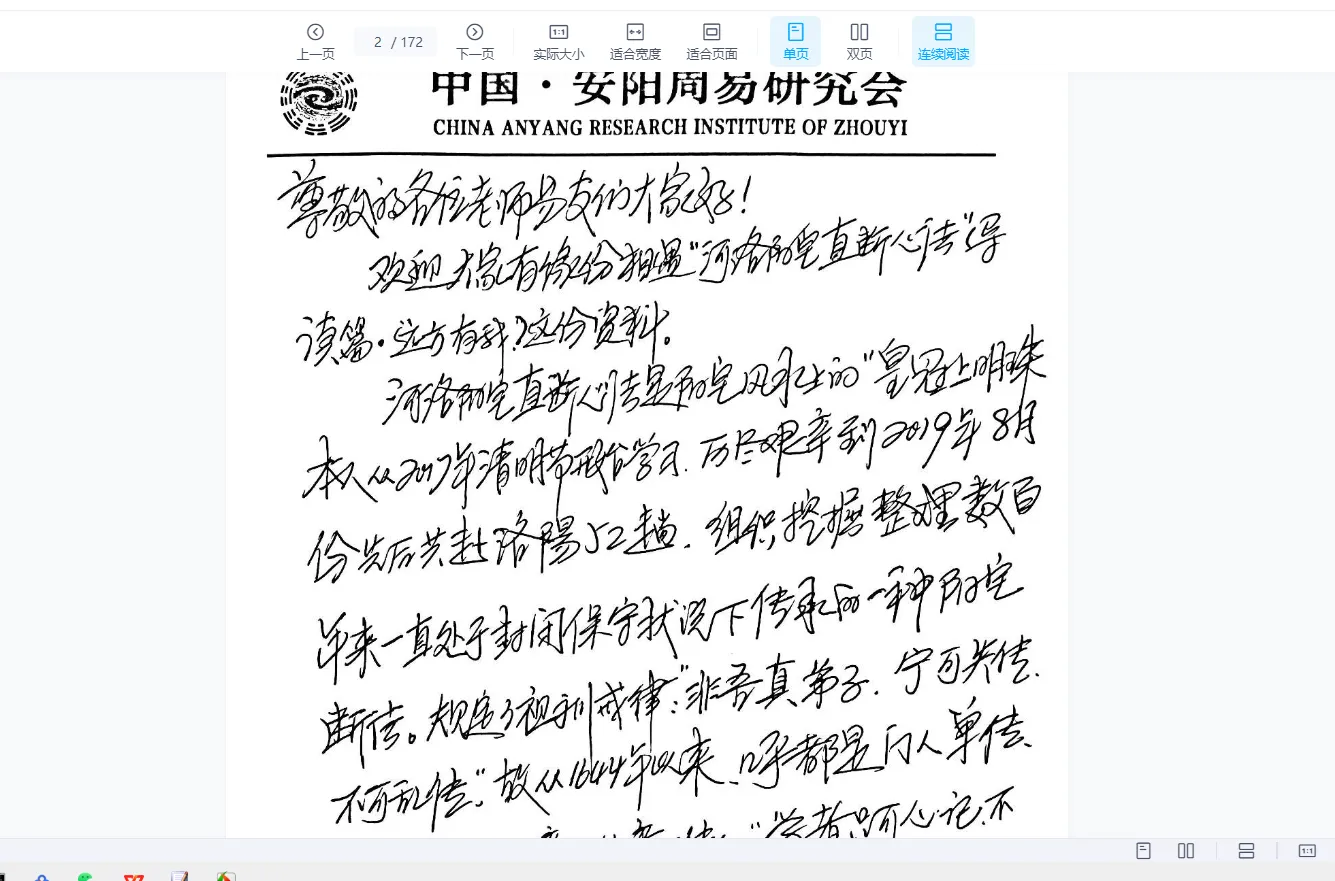 上一页
2 / 172
下一页
1:1
实际大小
适合宽度
适合页面
单页
双页
连续阅读
中国·安阳周易研究会
CHINA ANYANG RESEARCH INSTITUTE OF ZHOUYI
尊敬的各位老师易友们大家好!
欢迎大家有缘份相遇“河洛阴宅直断心法”导
读篇·远方有我?这份资料。
河洛阴宅直断心法是阴宅风水上的“皇冠上明珠
本人从2017年清明节开始学习.历尽艰辛到2019年8月
份先后共赴洛陽52趟.组织挖掘整理数百
年来一直处于封闭保守状况下传承的一种阴宅
断法。规定了祖训戒律:“非吾真弟子.宁可失传.
不可乱传”.故从1644年以来.几乎都是门人单传.
“学者只可心记.不
1:1